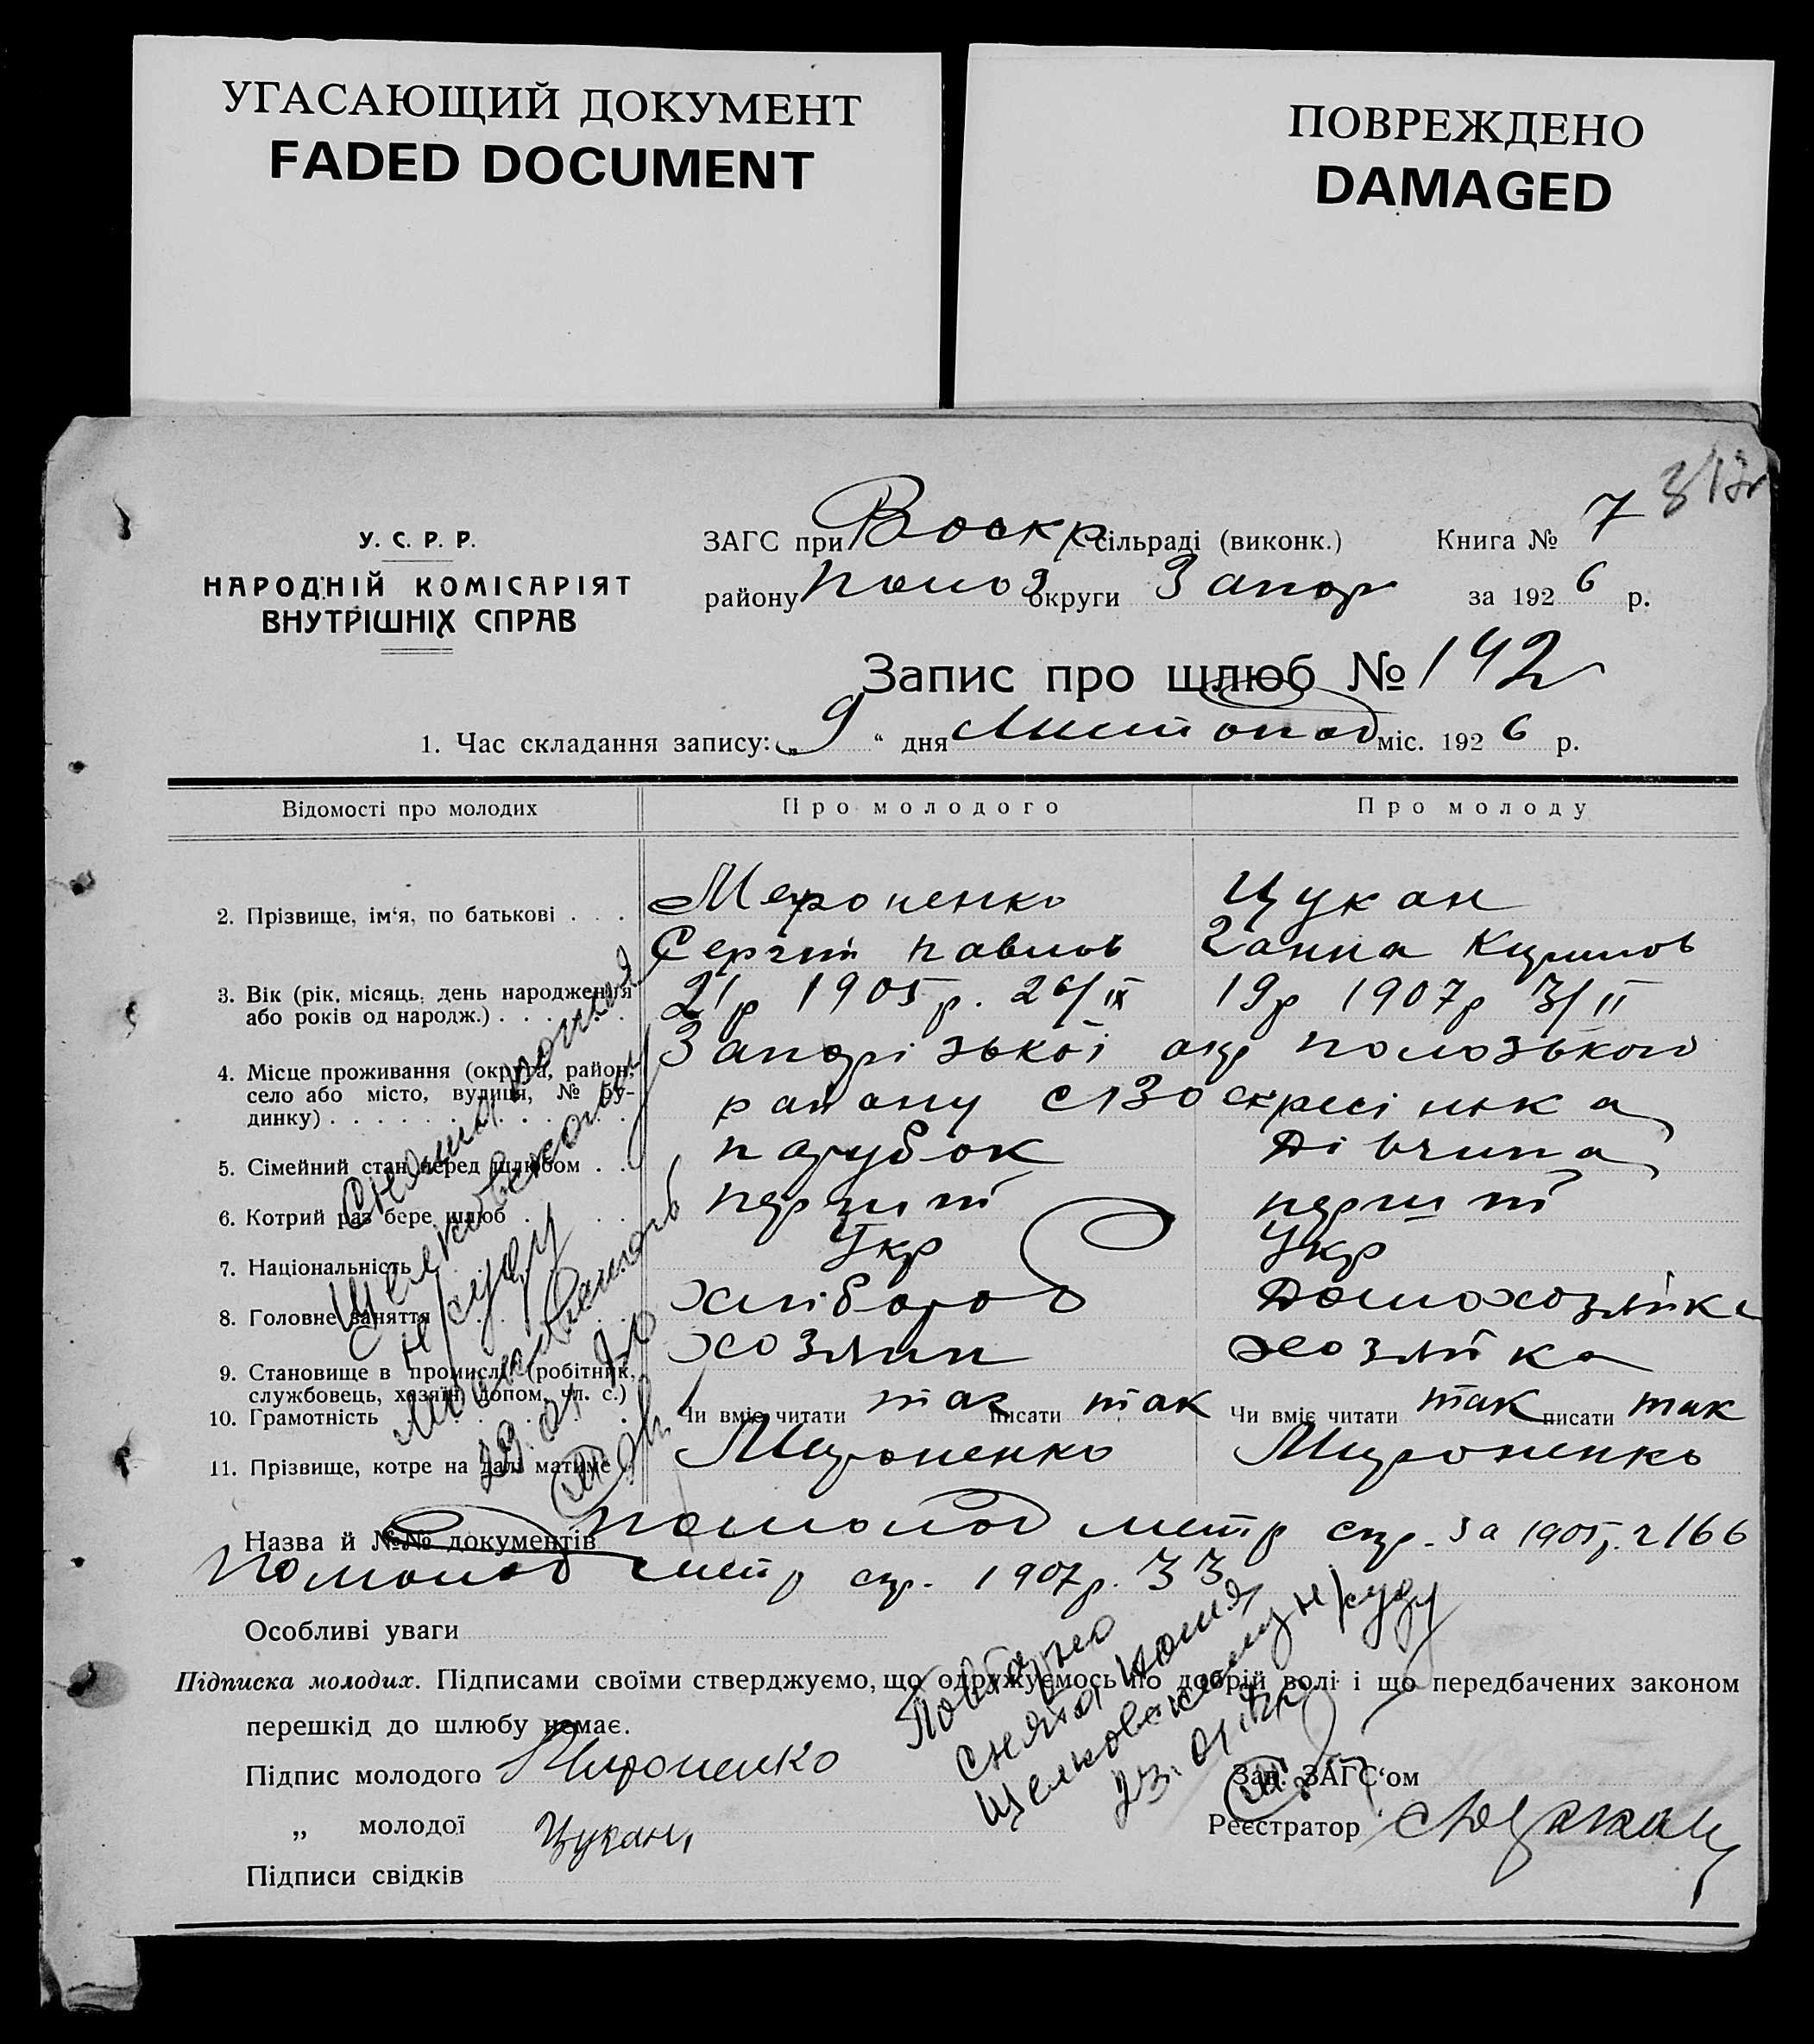 УГАСАЮЩИЙ ДОКУМЕНТ
FADED DOCUMENT
ПОВРЕЖДЕНО
DAMAGED
У. С. Р. Р.
НАРОДНІЙ КОМІСАРІЯТ
ВНУТРІШНІХ СПРАВ
ЗАГС при Воскр сільраді (виконк.) Книга № 7
району Полоз округи Запор за 1926 р.
Запис про шлюб № 142
1. Час складання запису: „9“ дня Листопад міс. 1926 р.
Відомості про молодих Про молодого Про молоду
2. Прізвище, ім‘я, по батькові . . . Мероненко Цукан
Сергій Павлов Ганна
3. Вік (рік, місяць, день народження 21р 1905р. 19р 1907р 3/II
або років од народж.) . . . . . .
4. Місце проживання (округа, район, Запорізької окр Полозького
село або місто, вулиця, № бу- району с Воскресінька
динку) . . . . . . . . . . . . .
5. Сімейний стан перед шлюбом . . парубок Дівчина
6. Котрий раз бере шлюб . . . перший перший
7. Національність . . . Укр Укр
8. Головне заняття . . . хлібороб Домохозяйка
9. Становище в промислі (робітник, хозяин хозяйка
службовець, хазяїн, допом. чл. с.)
10. Грамотність . . . Чи вміє читати так писати так Чи вміє читати так писати так
11. Прізвище, котре на далі матиме Мироненко Мироненко
Назва й №№ документів помолод метр стр. за 1905р. 166
помолод метр стр. 1907р. 33
Особливі уваги
Підписка молодих. Підписами своїми стверджуємо, що одружуємось по добрій волі і що передбачених законом
перешкід до шлюбу немає.
Підпис молодого Мироненко
„ молодої Цукан
Підписи свідків
Зав. ЗАГС‘ом
Реєстратор
Снята копия
Щелковскому
н/суду
Московской
Повторно
снята копия
Щелковскому н/суду